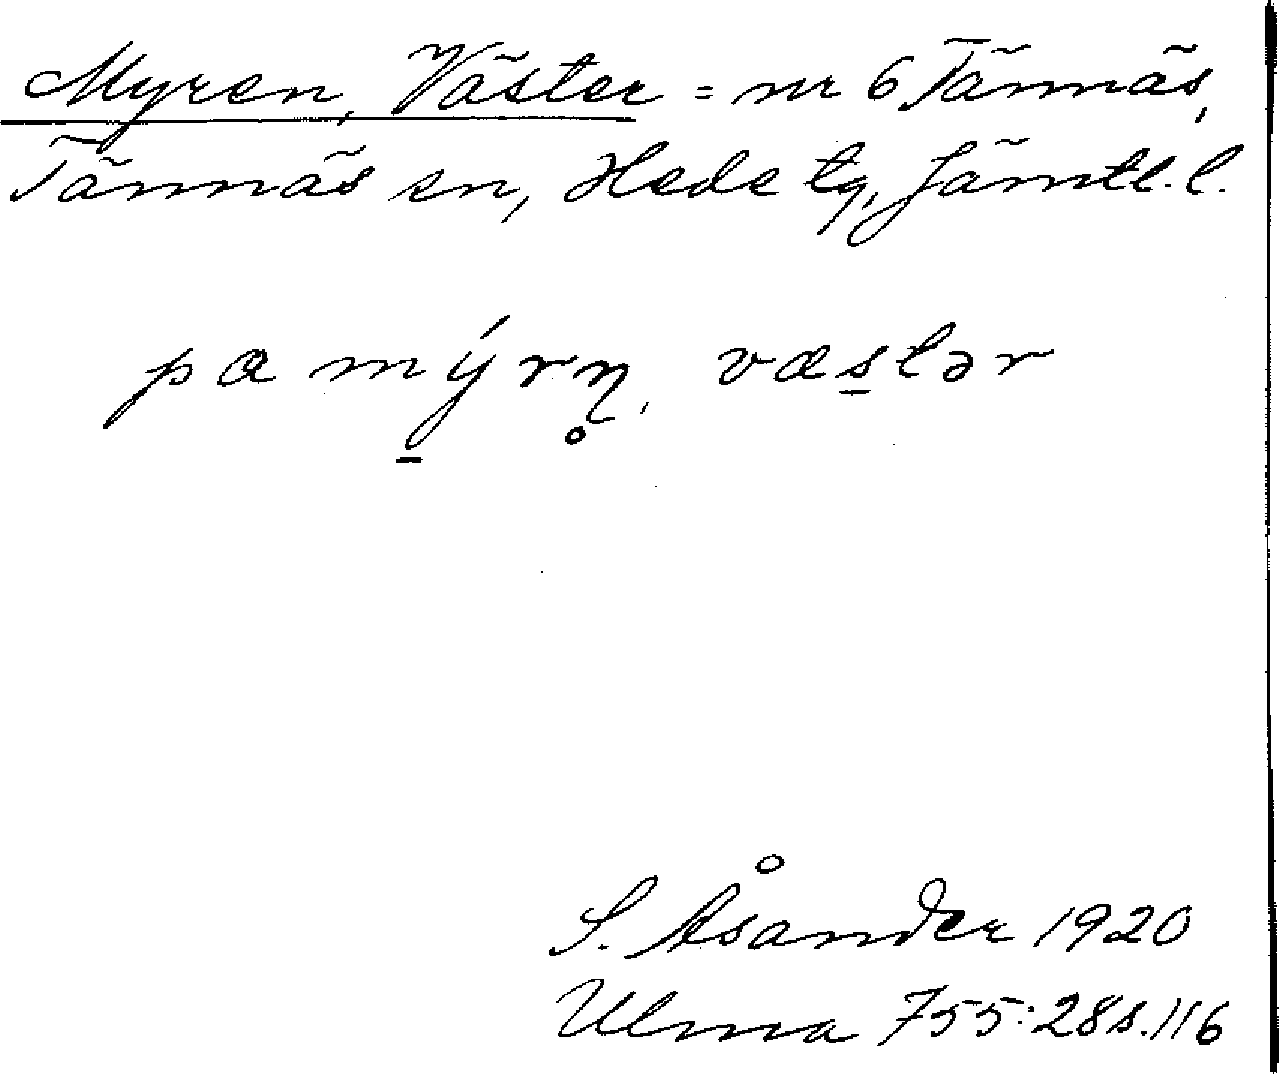 Myren, Väster = nr 6 Tännäs,
Tännäs sn, Hede tg, Jämtl. l.
pa mýrn̥, væslər
S. Åsander 1920
Ulma 755:28 s. 116